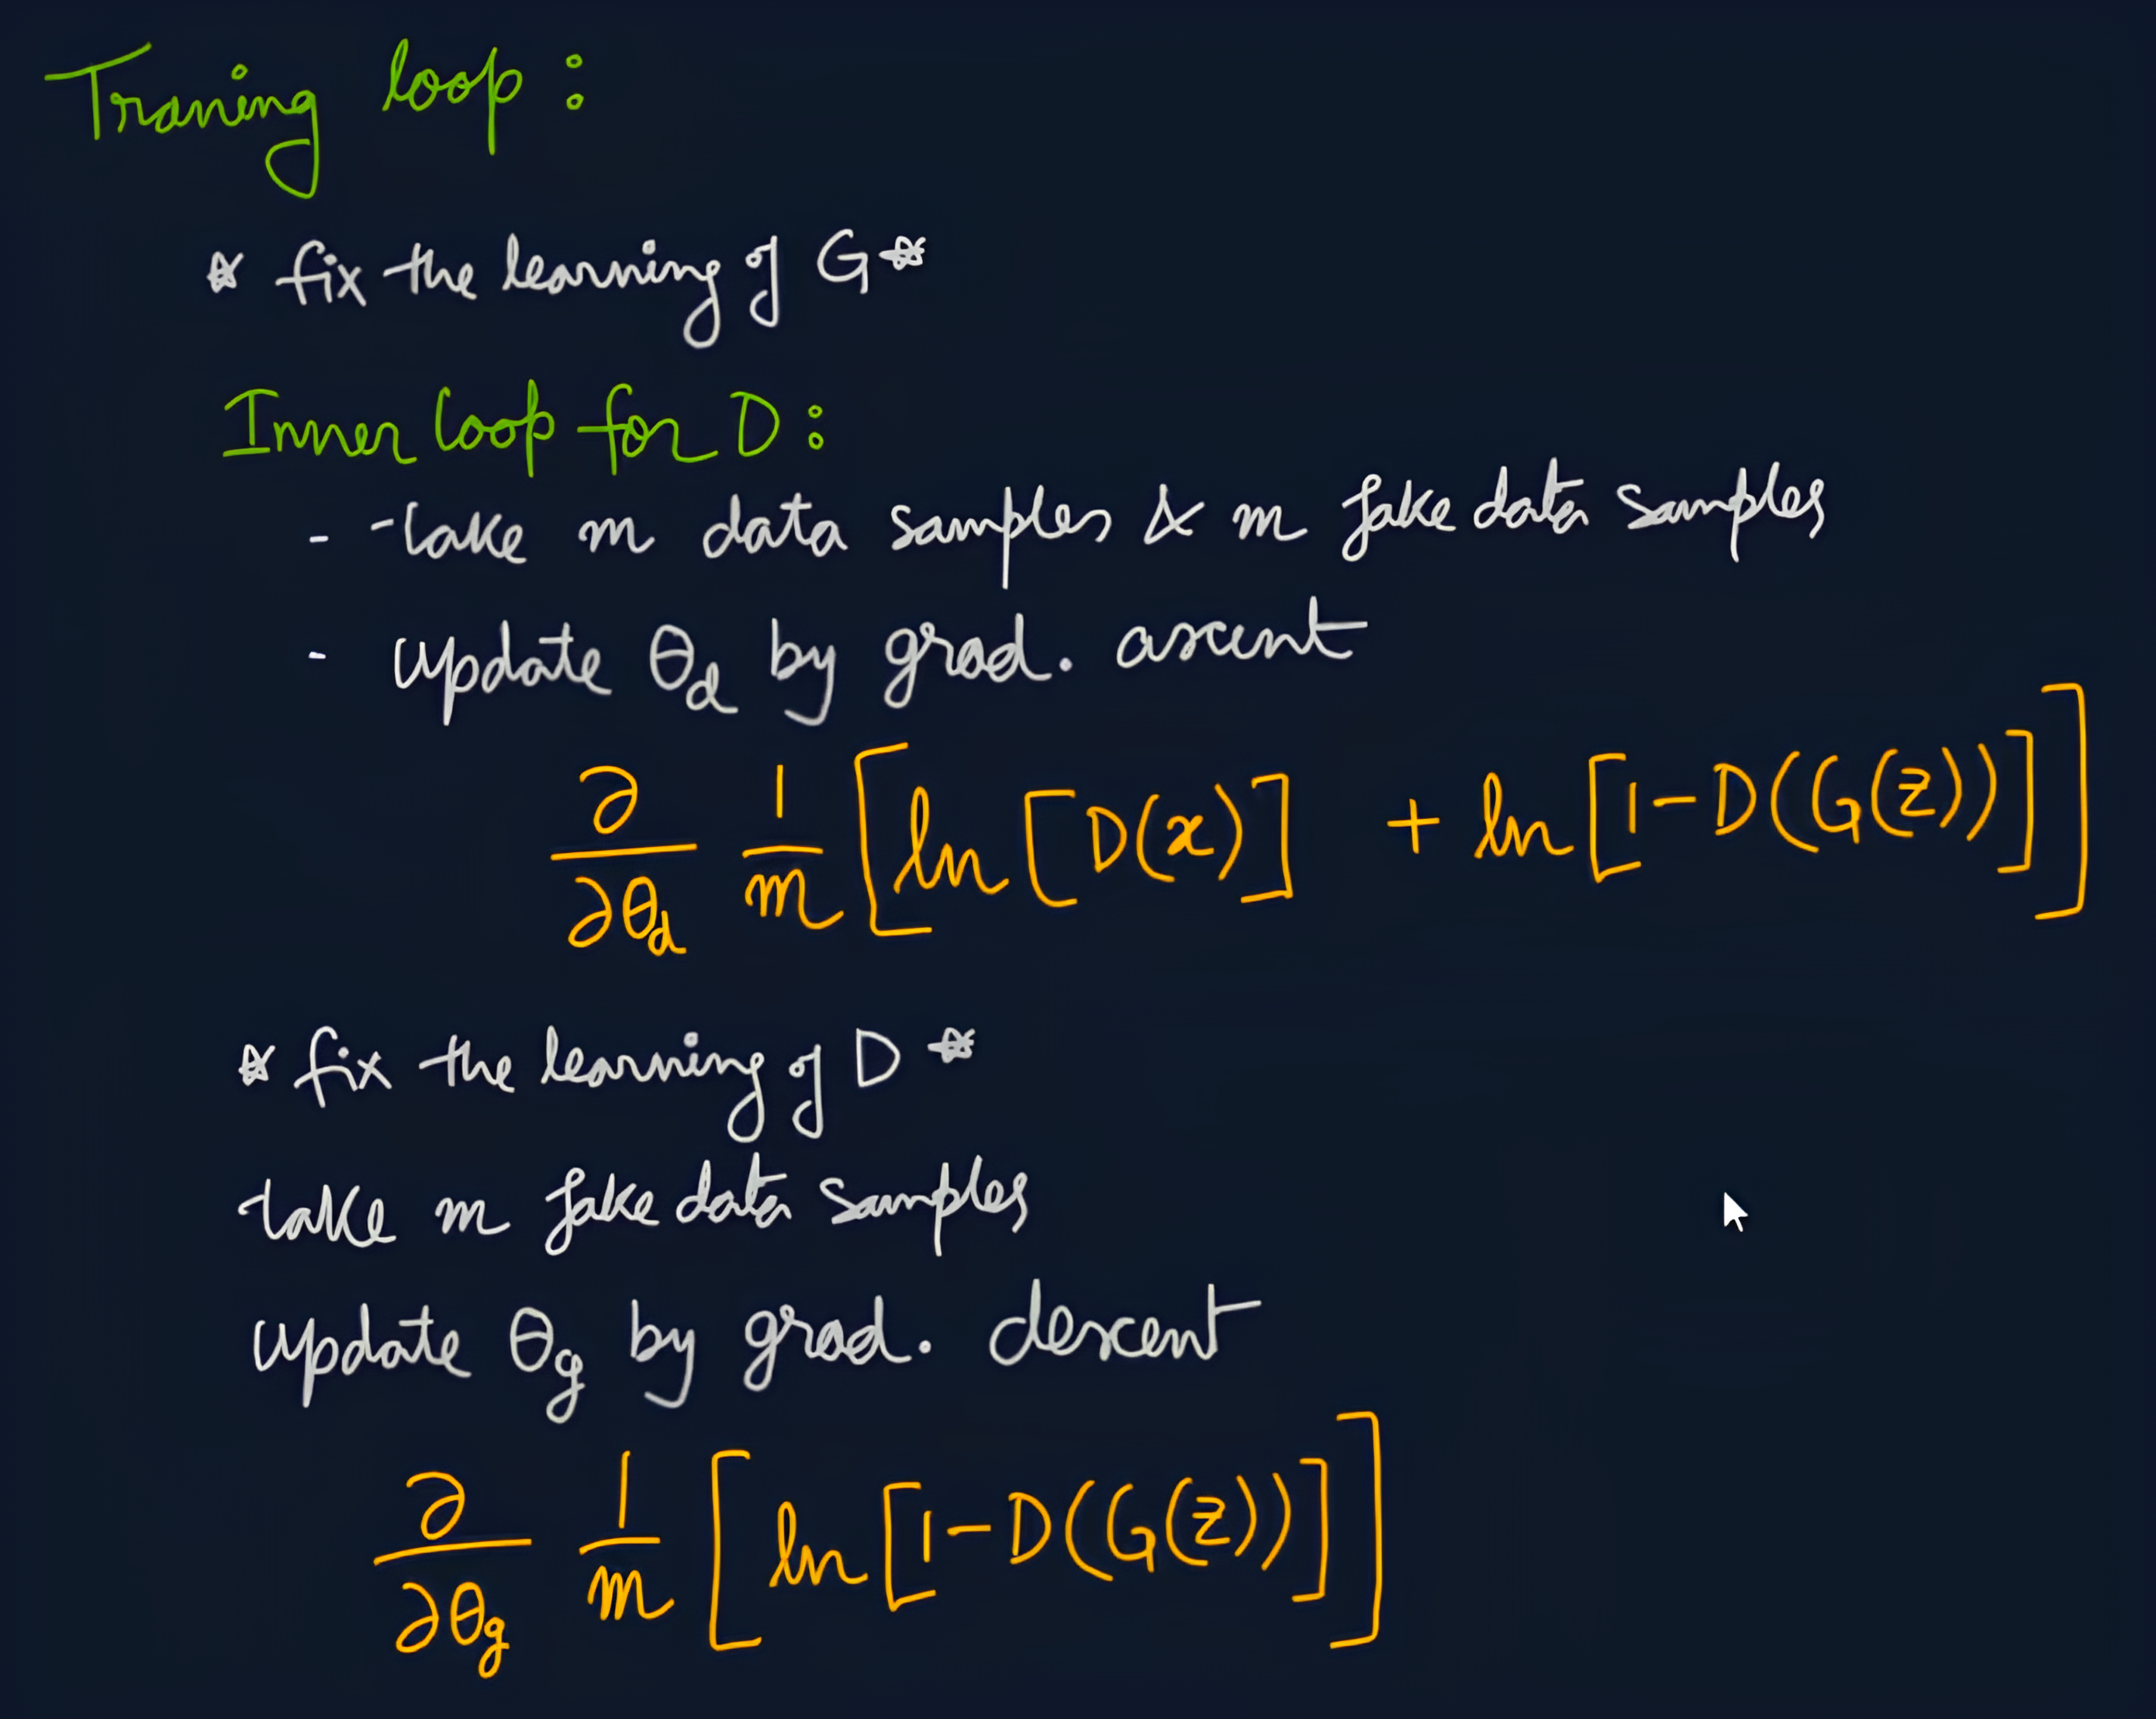 Traning loop :
* fix the learning of G *
Inner loop for D :
- take m data samples & m fake data samples
- update θd by grad. ascent
∂/∂θd 1/m [ln [D(x)] + ln [1 - D(G(z))]]
* fix the learning of D *
take m fake data samples
update θg by grad. descent
∂/∂θg 1/m [ln [1 - D(G(z))]]